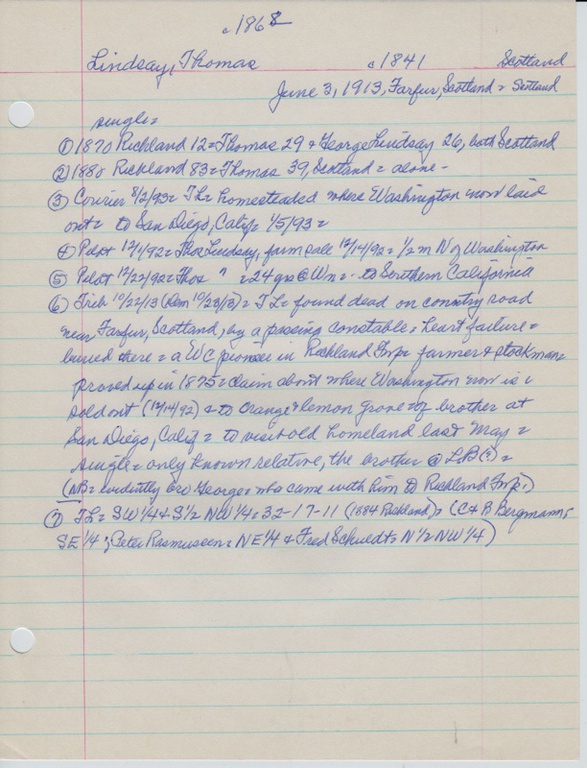 c1868
Lindsay, Thomas c1841 Scotland
June 3, 1913, Farfur, Scotland = Scotland
single=
① 1870 Richland 12= Thomas 29 & George Lindsay 26, both Scotland
② 1880 Richland 83= Thomas 39, Scotland= alone-
③ Courier 8/2/93= TL= homesteaded where Washington now laid
out= to San Diego, Calif= 1/5/93=
④ Pilot 12/1/92= Thos Lindsay, farm sale 12/14/92= 1/2 m N of Washington
⑤ Pilot 12/22/92= Thos " = 24 yrs @ Wn= - to Southern California
⑥ Trib 10/22/13 (Dem 10/23/13)= TL= found dead on country road
near Farfur, Scotland, by a passing constable= heart failure=
buried there= a WC pioneer in Richland Twp= farmer & stockman=
proved up in 1875= claim about where Washington now is=
sold out (12/14/92) & to orange & lemon grove of brother at
San Diego, Calif= to visit old homeland last May=
single= only known relative, the brother @ LB(?)=
(NB= evidently bro George= who came with him to Richland Twp.)
⑦ TL= SW 1/4 & S 1/2 NW 1/4, 32-17-11 (1884 Richland)= (C & B Bergmann,
SE 1/4; Peter Rasmussen= NE 1/4 & Fred Schuedt= N 1/2 NW 1/4)